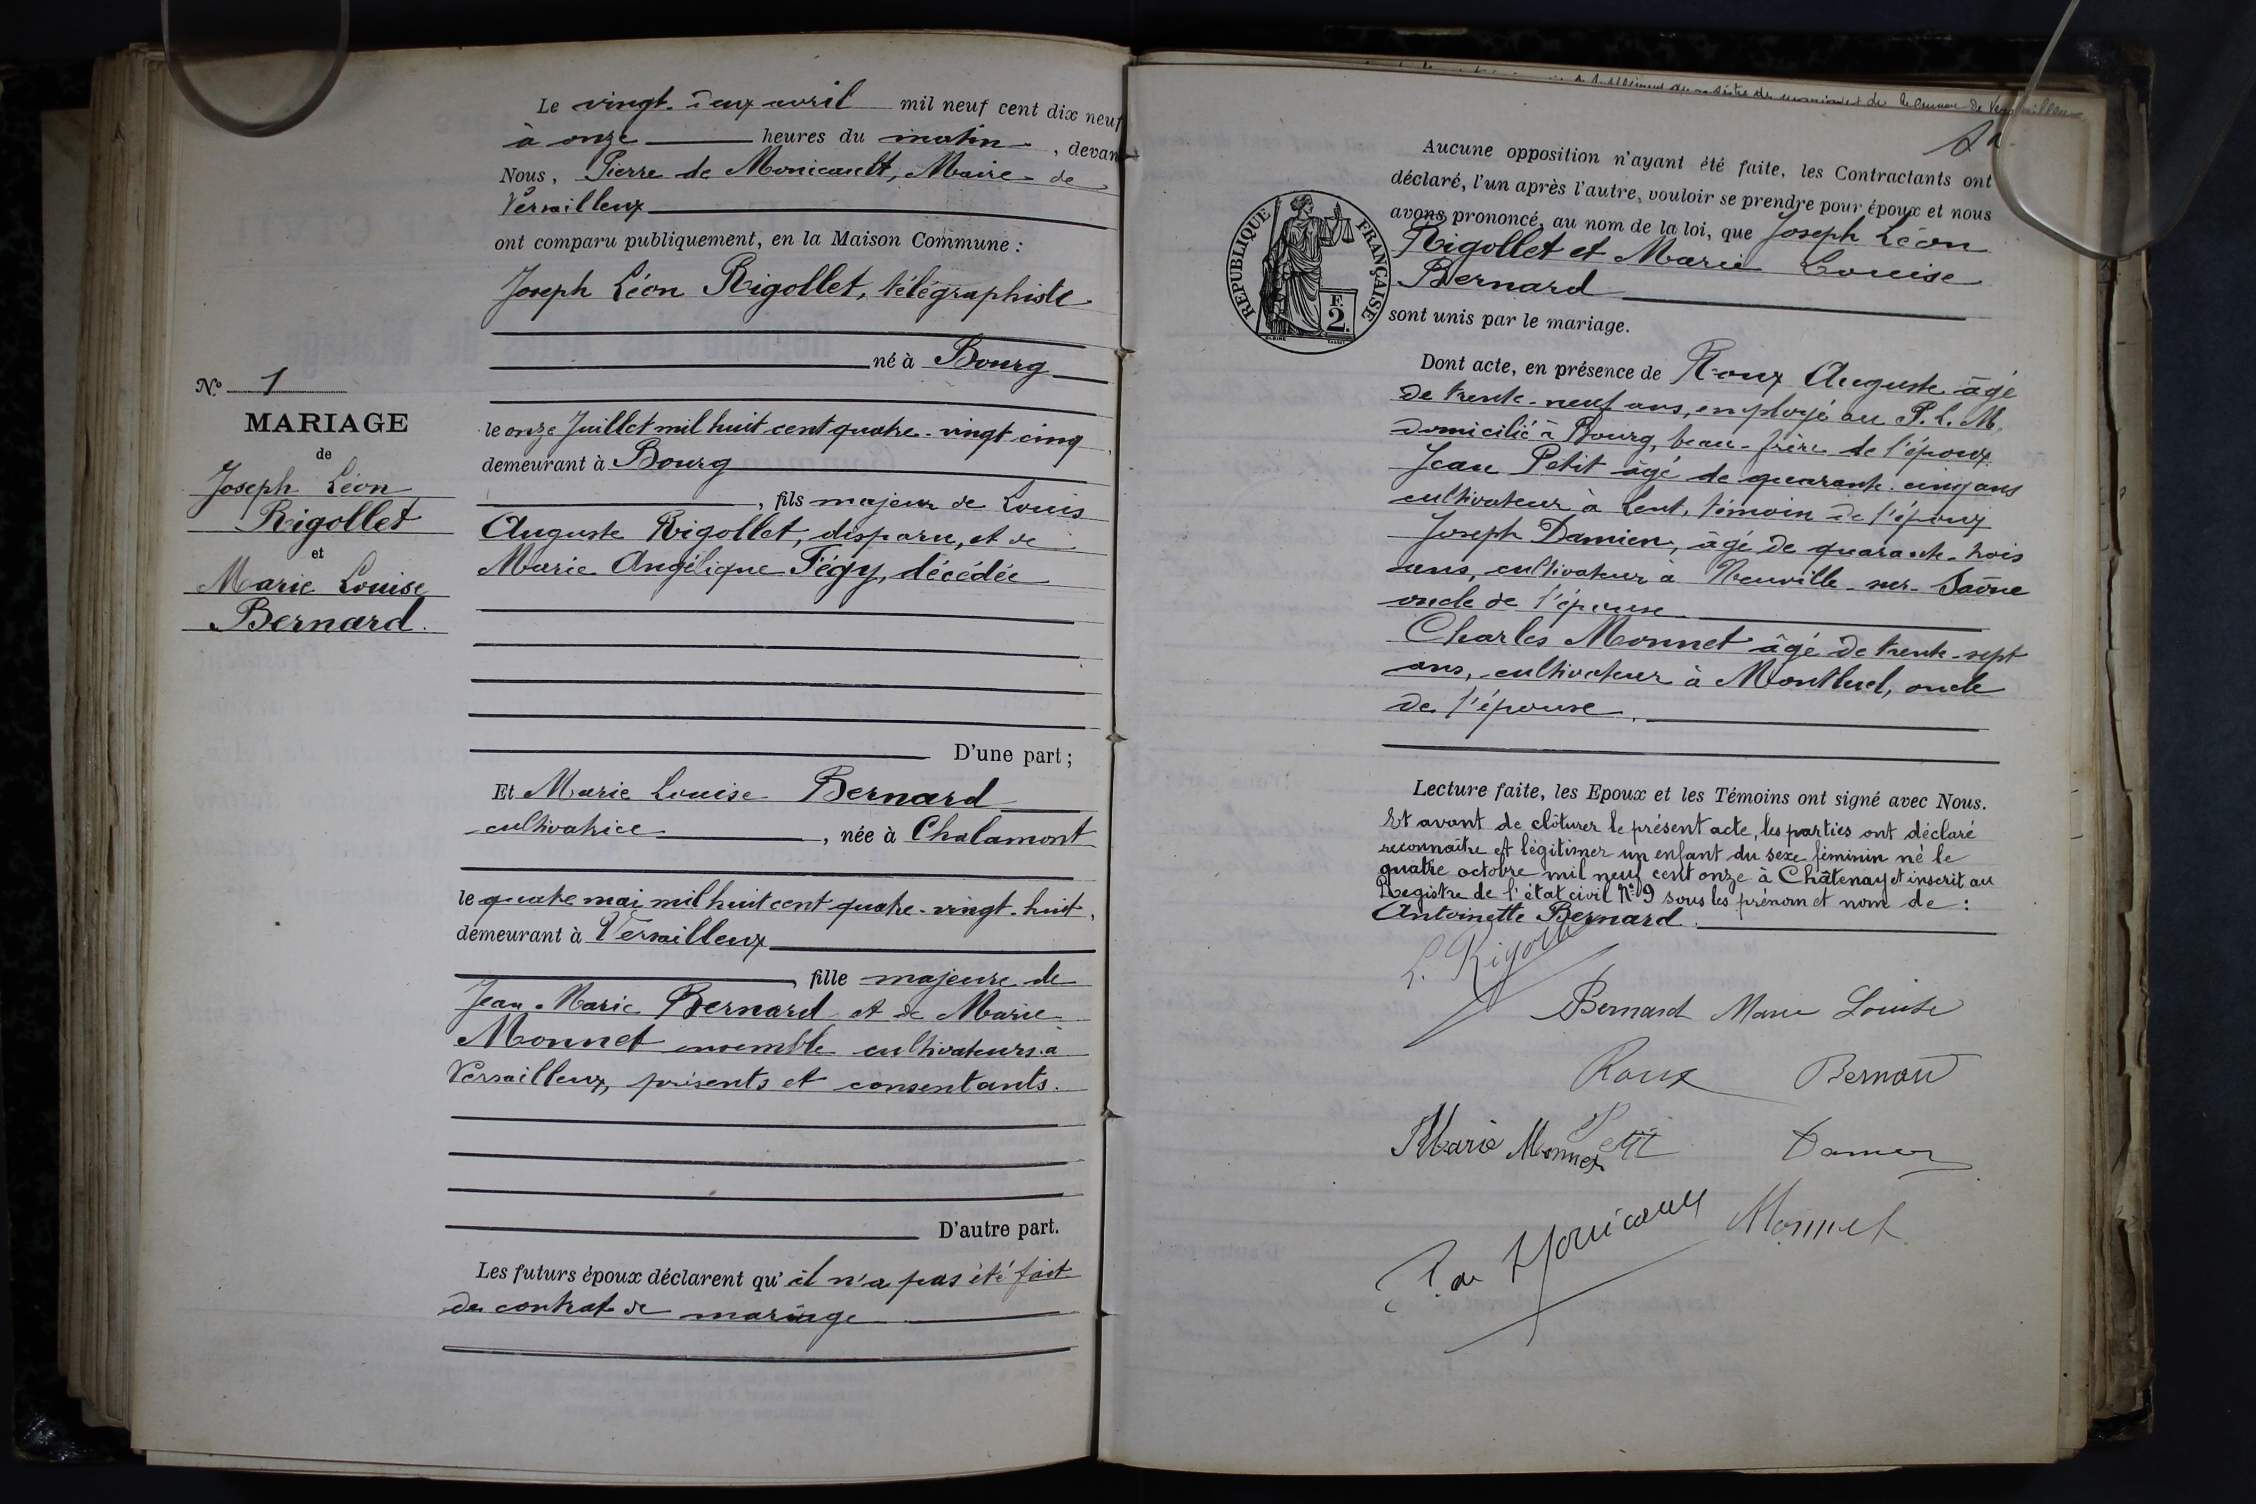 Le vingt-deux avril mil neuf cent dix neuf
à onze heures du matin, devan
Nous, Pierre de Monicault, Maire de
Versailleux
ont comparu publiquement, en la Maison Commune :
Joseph Léon Rigollet, télégraphiste
né à Bourg
le onze Juillet mil huit cent quatre-vingt cinq,
demeurant à Bourg
, fils majeur de Louis
Auguste Rigollet, disparu, et de
Marie Angélique Fégy, décédée
D'une part ;
Et Marie Louise Bernard
cultivatrice, née à Chalamont
le quatre mai mil huit cent quatre-vingt-huit,
demeurant à Versailleux
, fille majeure de
Jean-Marie Bernard et de Marie
Monnet ensemble cultivateurs à
Versailleux, présents et consentants.
D'autre part.
Les futurs époux déclarent qu'il n'a pas été fait
de contrat de mariage
No 1
MARIAGE
de
Joseph Léon
Rigollet
et
Marie Louise
Bernard.
de la commune de Versailleux
Aucune opposition n'ayant été faite, les Contractants ont
déclaré, l'un après l'autre, vouloir se prendre pour époux et nous
avons prononcé, au nom de la loi, que Joseph Léon
Rigollet et Marie Louise
Bernard
sont unis par le mariage.
RÉPUBLIQUE FRANÇAISE
F.
2.
Dont acte, en présence de Roux Auguste âgé
de trente-neuf ans, employé au P.L.M.
domicilié à Bourg, beau-frère de l'époux
Jean Petit âgé de quarante-cinq ans
cultivateur à Lent, témoin de l'époux
Joseph Damien, âgé de quarante-trois
ans, cultivateur à Neuville-sur-Saône
oncle de l'épouse
Charles Monnet âgé de trente-sept
ans, cultivateur à Montluel, oncle
de l'épouse.
Lecture faite, les Epoux et les Témoins ont signé avec Nous.
Et avant de clôturer le présent acte, les parties ont déclaré
reconnaître et légitimer un enfant du sexe féminin né le
quatre octobre mil neuf cent onze à Châtenay et inscrit au
Registre de l'état civil No 9 sous les prénom et nom de :
Antoinette Bernard.
L. Rigollet
Bernard Marie Louise
Roux Bernard
Marie Monnet Petit Damien
P. de Monicault Monnet